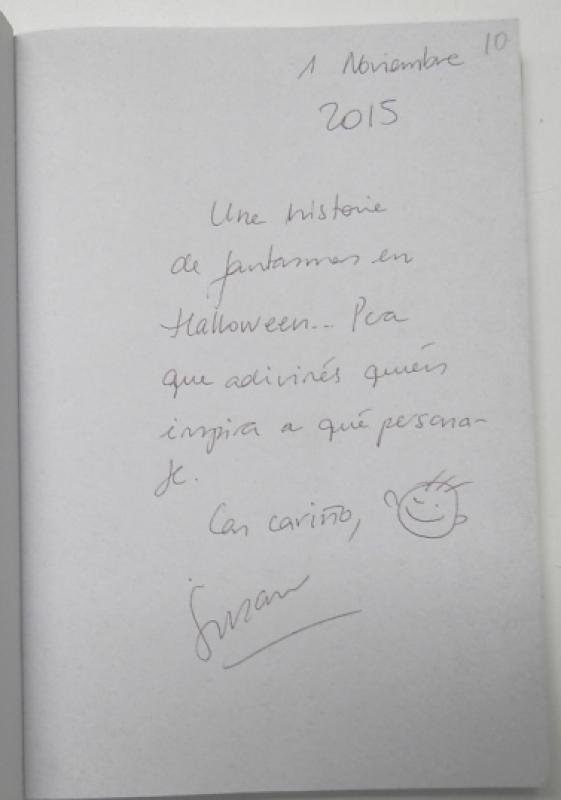 10
1 Noviembre
2015
Una historia
de fantasmas en
Halloween... Para
que adivinés quién
inspira a qué persona-
je.
Con cariño,
Susan